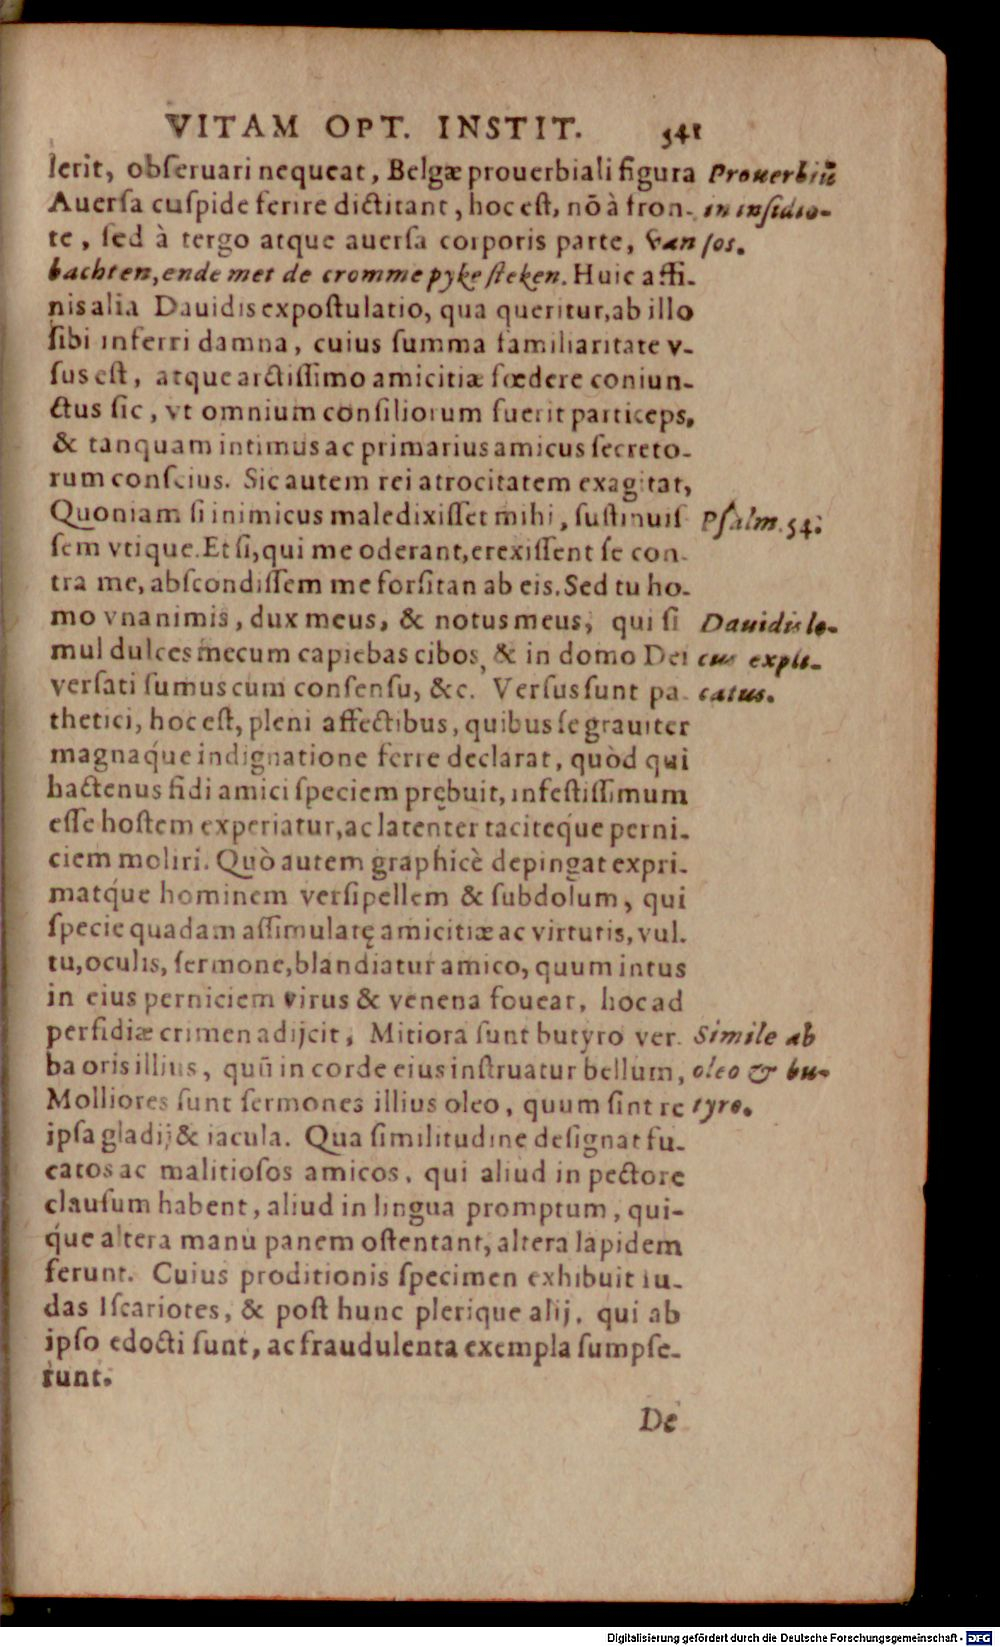 VITAM OPT. INSTIT. 541
lerit, obſeruari nequeat, Belgæ prouerbiali figura
Auerſa cuſpide ferire dictitant, hoc eſt, nõ à fron-
te, ſed à tergo atque auerſa corporis parte, van
bachten, ende met de cromme pyke ſteken. Huic affi-
nis alia Dauidis expoſtulatio, qua queritur, ab illo
ſibi inferri damna, cuius ſumma familiaritate v-
ſus eſt, atque arctiſſimo amicitiæ fœdere coniun-
ctus ſic, vt omnium conſiliorum fuerit particeps,
& tanquam intimus ac primarius amicus ſecreto-
rum conſcius. Sic autem rei atrocitatem exagitat,
Quoniam ſi inimicus maledixiſſet mihi, ſuſtinuiſ
ſem vtique. Et ſi, qui me oderant, erexiſſent ſe con-
tra me, abſcondiſſem me forſitan ab eis. Sed tu ho-
mo vnanimis, dux meus, & notus meus, qui ſi
mul dulces mecum capiebas cibos, & in domo Dei
verſati ſumus cum conſenſu, &c. Verſus ſunt pa-
thetici, hoc eſt, pleni affectibus, quibus ſe grauiter
magnaq́ue indignatione ferre declarat, quòd qui
hactenus fidi amici ſpeciem prębuit, infeſtiſſimum
eſſe hoſtem experiatur, ac latenter taciteq́ue perni-
ciem moliri. Quò autem graphicè depingat expri-
matq́ue hominem verſipellem & ſubdolum, qui
ſpecie quadam aſſimulatę amicitiæ ac virtutis, vul-
tu, oculis, ſermone, blandiatur amico, quum intus
in eius perniciem virus & venena foueat, hoc ad
perfidiæ crimen adijcit, Mitiora ſunt butyro ver-
ba oris illius, quũ in corde eius inſtruatur bellum,
Molliores ſunt ſermones illius oleo, quum ſint re
ipſa gladij & iacula. Qua ſimilitudine deſignat fu-
catos ac malitioſos amicos, qui aliud in pectore
clauſum habent, aliud in lingua promptum, qui-
q́ue altera manu panem oſtentant, altera lapidem
ferunt. Cuius proditionis ſpecimen exhibuit Iu-
das Iſcariotes, & poſt hunc plerique alij, qui ab
ipſo edocti ſunt, ac fraudulenta exempla ſumpſe-
runt.
De
Prouerbiũ
in inſidio-
ſos.
Pſalm. 54.
Dauidis lo-
cus expli-
catus.
Simile ab
oleo & bu-
tyro.
Digitalisierung gefördert durch die Deutsche Forschungsgemeinschaft - DFG